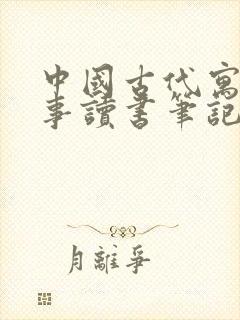 中國古代寓
事讀書筆記
月離爭